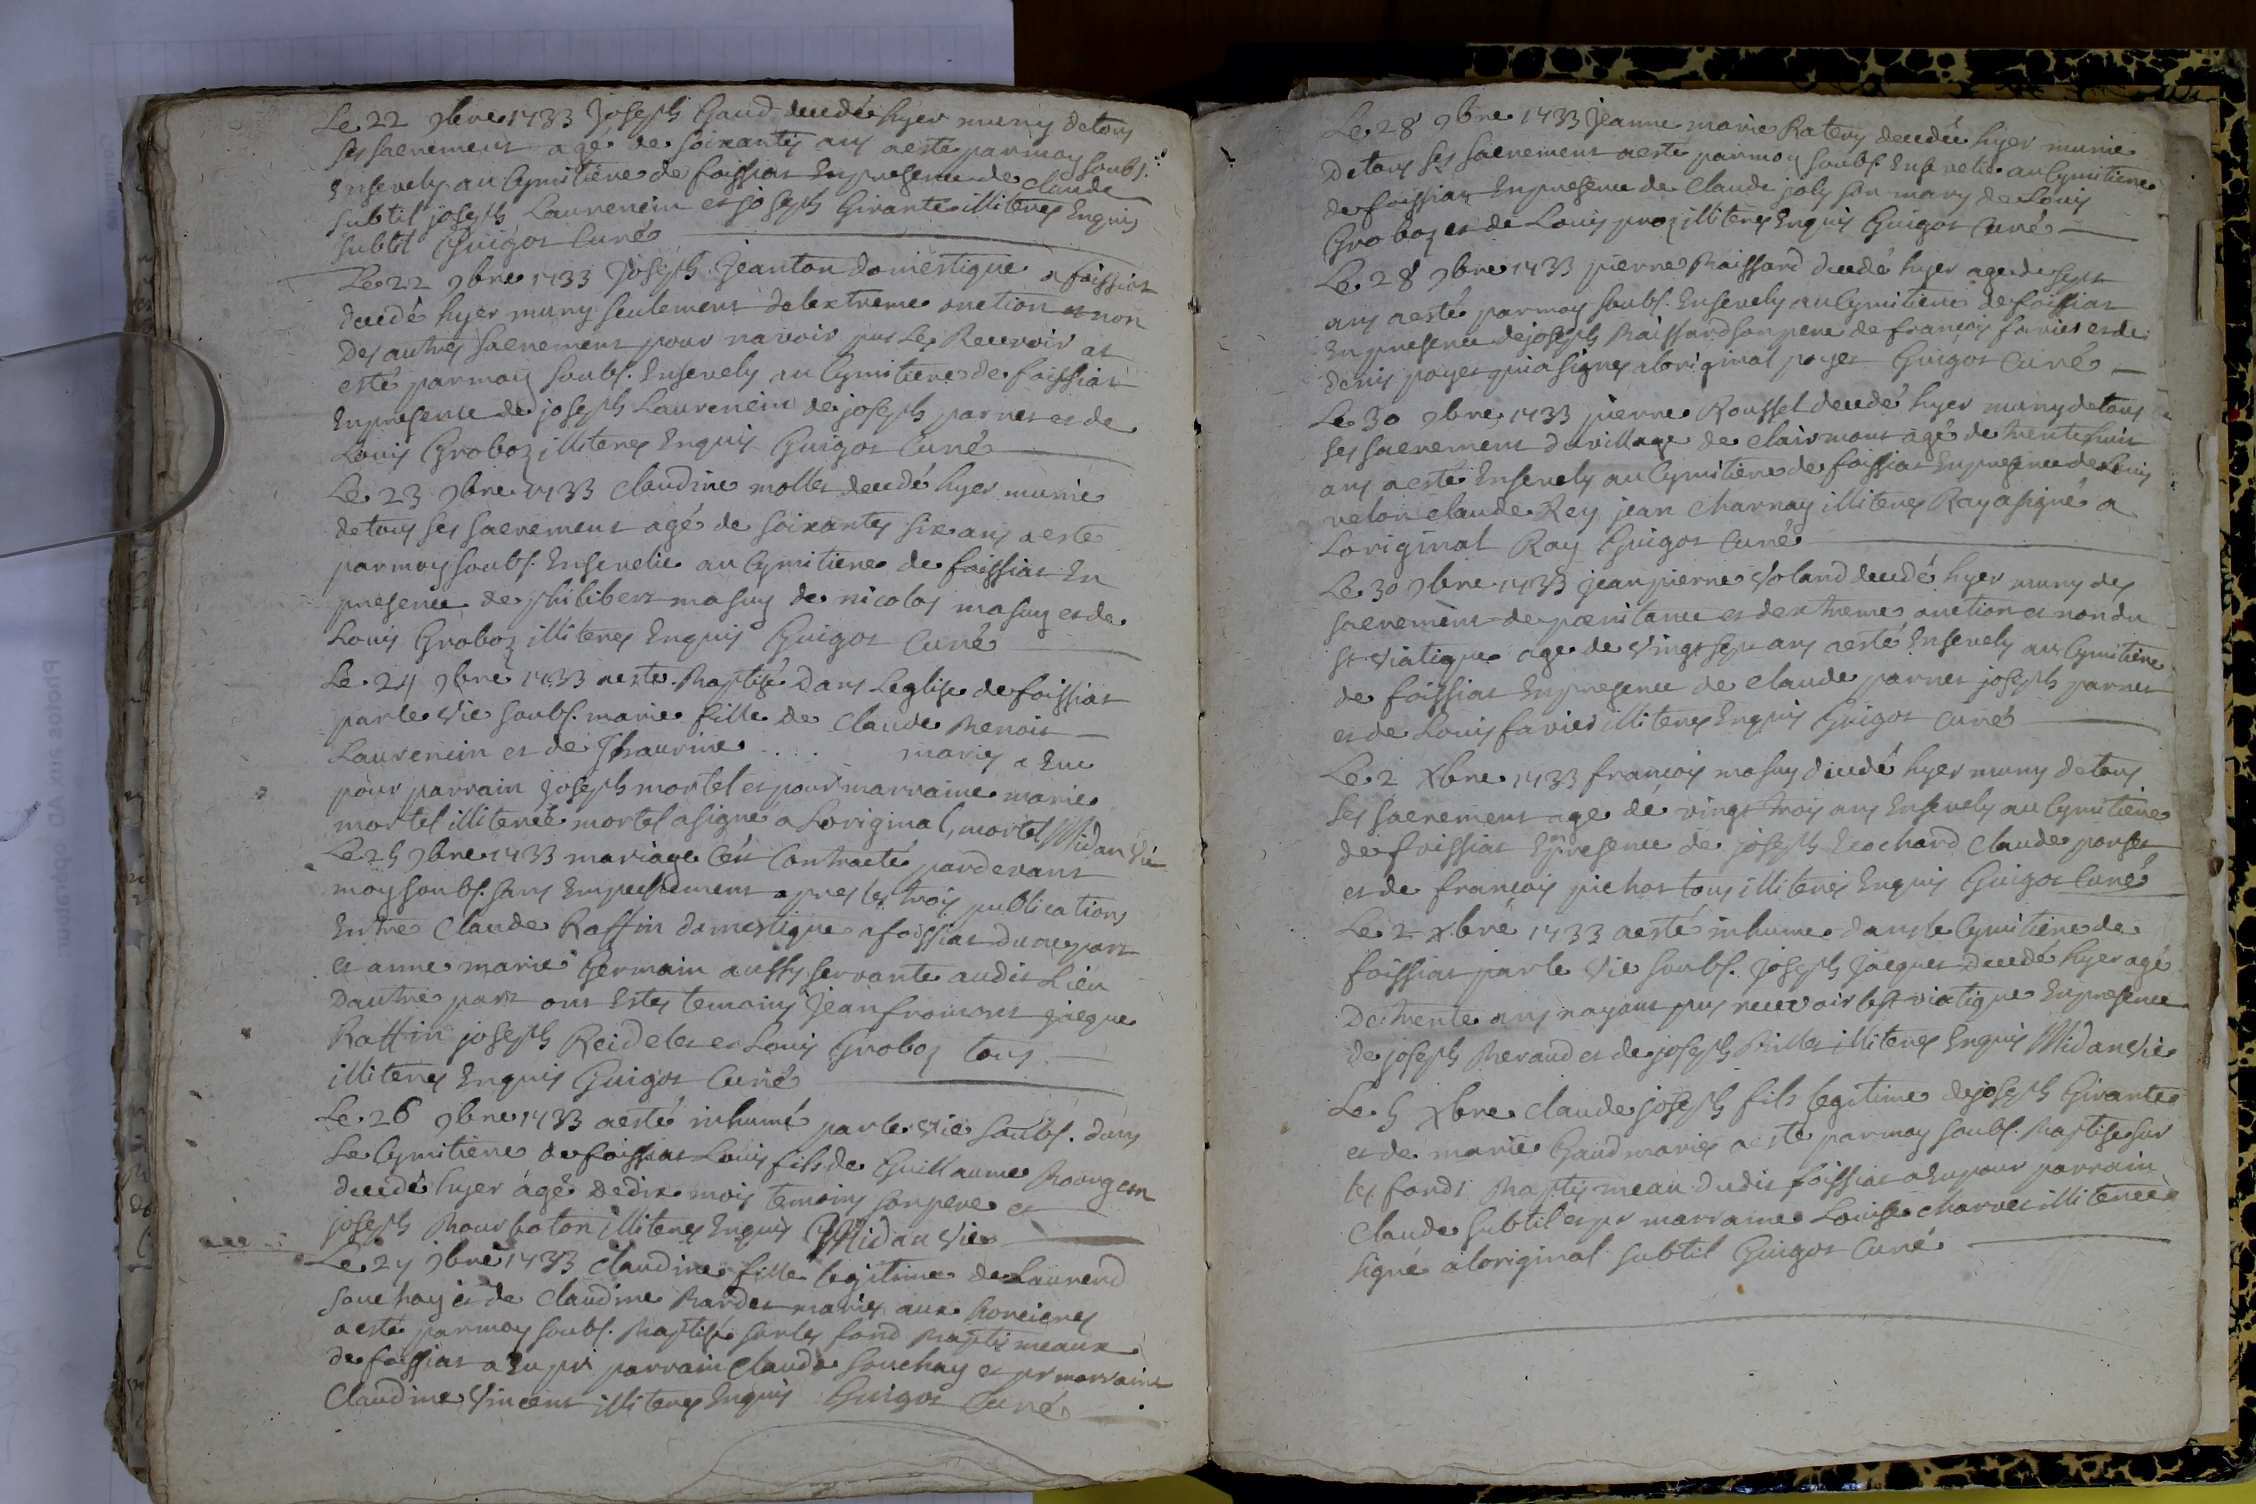 Le 22 9bre 1733 Joseph Gaud decedé hyer muny de tous
ses sacrement agé de soixantes ans a esté par moy soubs.
Ensevely au Cymitiere de foissiat En presence de claude
subtil joseph Laurencin et joseph Girante illiteres Enquis
subtil Guigot Curé
Le 22 9bre 1733 Joseph Jeanton domestique a foissiat
decedé hyer muny seulement de lextreme onction et non
des autres sacrement pour navoir pus Les Recevoir at
esté par moy soubs. Ensevely au Cymitiere de foissiat
En presence de joseph Laurencin de joseph parnet et de
Louis Groboz illiteres Enquis Guigot Curé
Le 23 9bre 1733 Claudine mollet decedé hyer munie
de tous ses sacrement agé de soixantes six ans a esté
par moy soubs. Ensevelie au Cymitiere de foissiat En
presence de philibert masuy de nicolas masuy et de
Louis Groboz illiteres Enquis Guigot Curé
Le 24 9bre 1733 a este Baptisé Dans Leglise de foissiat
par le vic soubs. marie fille de Claude Benoit
Laurencin et de Thaurine .... mariés a Eue
pour parrain Joseph mortel et pour marraine marie
mortel illiterée mortel a signé a Loriginal, mortel Midan vic
Le 25 9bre 1733 mariage Cest Contracté pardevant
moy soubs. sans Empechement apres les trois publications
Entre Claude Raffin domestique a foissiat dune part
et anne marie Germain aussy servante audit Lieu
Dautre part ont Estes temoins Jean fromont jacque
Raffin joseph Reidelet et Louis Groboz tous
illiteres Enquis Guigot Curé
Le 26 9bre 1733 a esté inhumé par le vic soubs. dans
Le Cymitiere de foissiat Louis fils de Guillaume Bourgeon
decedé hyer agé de dix mois temoins son pere et
joseph Bourbaton illiteres Enquis Midan vic
Le 27 9bre 1733 Claudine fille legitime de Laurend
souchay et de Claudine Bardet mariés aux
a esté par moy soubs. Baptisé sur les fond Baptismeaux
de foissiat a Eu pr parrain Claude souchay et pr marraine
Claudine Vincent illiteres Enquis Guigot Curé
Le 28 9bre 1733 Jeanne marie Ratery decedée hyer munie
De tous ses sacrement a esté par moy soubs. Ensevelie au Cymitiere
de foissiat En presence de Claude joly son mary de Louis
Groboz et de Louis proz illiteres Enquis Guigot Curé
Le 28 9bre 1733 pierre Baissard decedé hyer age de sept
ans a esté par moy soubs. Ensevely au Cymitiere de foissiat
En presence de joseph Baissard son pere de françois favier et de
denis poyet qui a signes a loriginal poyet Guigot Curé
Le 30 9bre 1733 pierre Roussel decedé hyer muny de tous
ses sacrement du village de Clairmont agé de trente huit
ans a esté Ensevely au Cymitiere de foissiat En presence de Louis
velon claude Rey jean Charnay illiteres Ray a signé a
Loriginal Ray Guigot Curé
Le 30 9bre 1733 jean pierre Voland decedé hyer muny des
sacrement de pœnitance et dextreme onction et non du
st viatique age de vingt sept ans a esté Ensevely au Cymitiere
de foissiat En presence de Claude parnet joseph parnet
et de Louis favier illiteres Enquis Guigot Curé
Le 2 Xbre 1733 françois masuy decedé hyer muny de tous
ses sacrement age de vingt trois ans Ensevely au Cymitiere
de foissiat En presence de joseph Ecochard Claude
et de françois pichot tous illiteres Enquis Guigot Curé
Le 2 Xbre 1733 a esté inhume dans le Cymitiere de
foissiat par le vic soubs. Joseph Jacquet decedé hyer agé
De trente ans nayant pus recevoir le st viatique En presence
de joseph Beraud et de joseph Billet illiteres Enquis Midan vic
Le 5 Xbre Claude joseph fils legitime de joseph Girante
et de marie Gaud mariés a esté par moy soubs. Baptise sur
les fonds Baptismeau dudit foissiat a Eu pour parrain
Claude subtil et pr marraine Louise Charvet illiterée
signé a loriginal subtil Guigot Curé